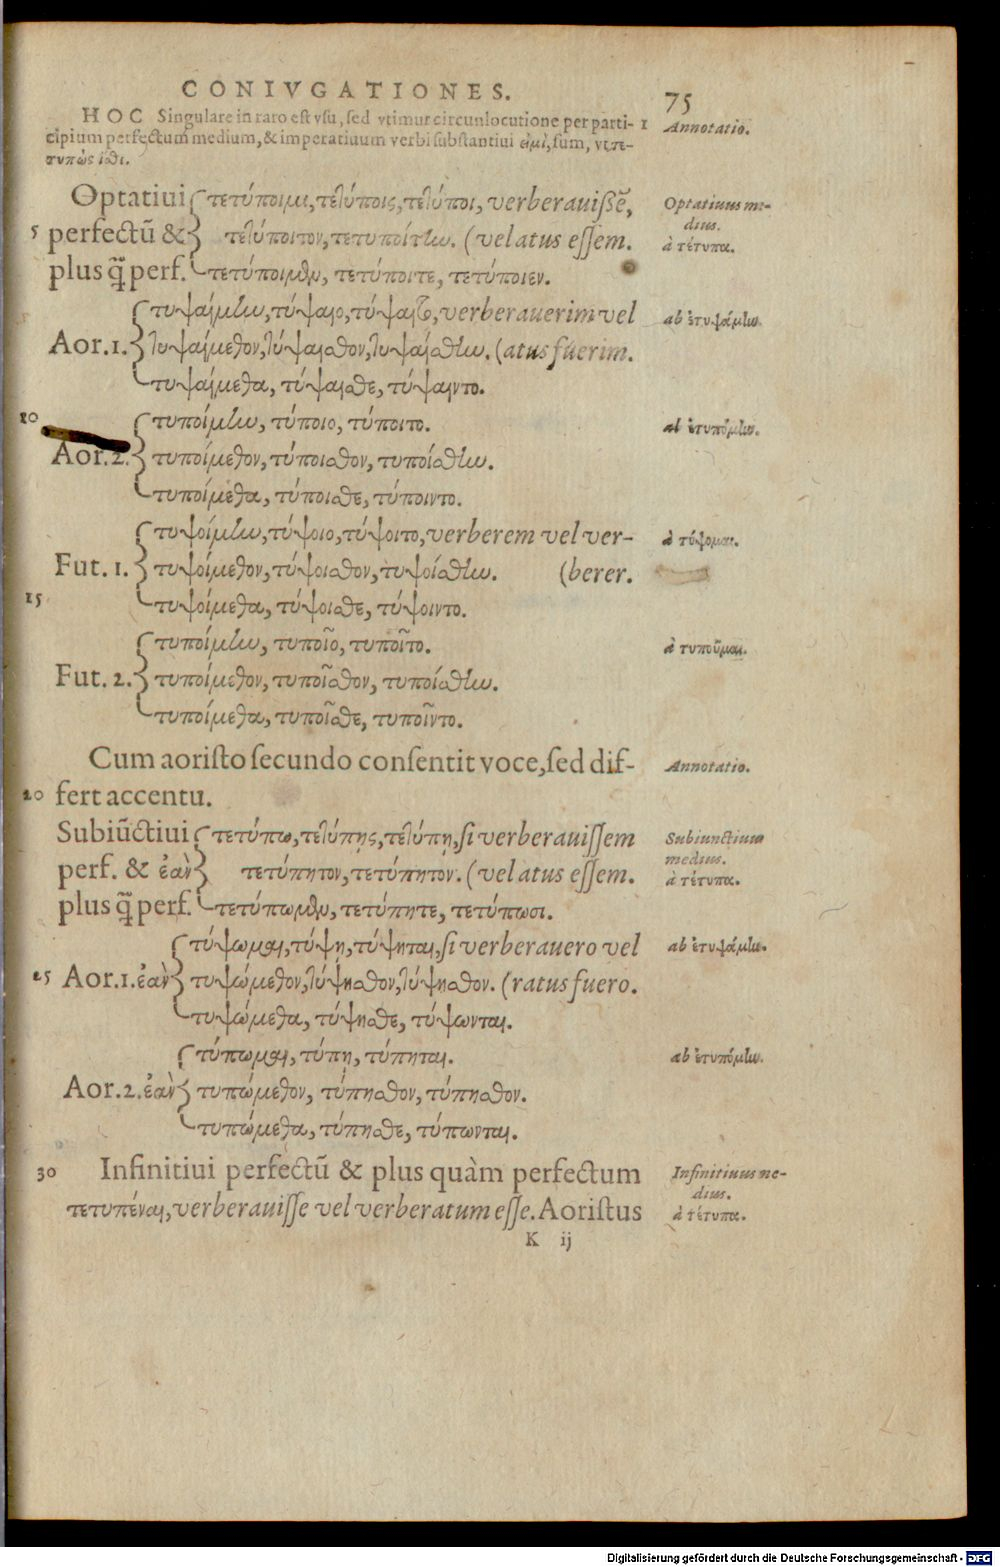 CONIVGATIONES.
75
HOC Singulare in raro est vsu, sed vtimur circunlocutione per parti- 1 Annotatio.
cipium perfectum medium, & imperatiuum verbi substantiui εἰμὶ, sum, vt τε-
τυπὼς ἴσθι.
Optatiui τετύποιμι, τετύποις, τετύποι, verberauissẽ, Optatiuus me-
dius.
5 perfectũ & τετύποιτον, τετυποίτην. (vel atus essem. à τέτυπα.
plus q̃ perf. τετύποιμεν, τετύποιτε, τετύποιεν.
τυψαίμην, τύψαιο, τύψαιτο, verberauerim vel ab ἐτυψάμην.
Aor. 1. τυψαίμεθον, τύψαισθον, τυψαίσθην. (atus fuerim.
τυψαίμεθα, τύψαισθε, τύψαιντο.
10 τυποίμην, τύποιο, τύποιτο. ab ἐτυπόμην.
Aor. 2. τυποίμεθον, τύποισθον, τυποίσθην.
τυποίμεθα, τύποισθε, τύποιντο.
τυψοίμην, τύψοιο, τύψοιτο, verberem vel ver- à τύψομαι.
Fut. 1. τυψοίμεθον, τύψοισθον, τυψοίσθην. (berer.
15 τυψοίμεθα, τύψοισθε, τύψοιντο.
τυποίμην, τυποῖο, τυποῖτο. à τυποῦμαι.
Fut. 2. τυποίμεθον, τυποῖσθον, τυποίσθην.
τυποίμεθα, τυποῖσθε, τυποῖντο.
Cum aoristo secundo consentit voce, sed dif- Annotatio.
20 fert accentu.
Subiũctiui τετύπω, τετύπῃς, τετύπῃ, si verberauissem Subiunctiuus
medius.
perf. & ἐὰν τετύπητον, τετύπητον. (vel atus essem. à τέτυπα.
plus q̃ perf. τετύπωμεν, τετύπητε, τετύπωσι.
τύψωμαι, τύψῃ, τύψηται, si verberauero vel ab ἐτυψάμην.
25 Aor. 1. ἐὰν τυψώμεθον, τύψησθον, τύψησθον. (ratus fuero.
τυψώμεθα, τύψησθε, τύψωνται.
τύπωμαι, τύπῃ, τύπηται. ab ἐτυπόμην.
Aor. 2. ἐὰν τυπώμεθον, τύπησθον, τύπησθον.
τυπώμεθα, τύπησθε, τύπωνται.
30 Infinitiui perfectũ & plus quàm perfectum Infinitiuus me-
dius.
τετυπέναι, verberauisse vel verberatum esse. Aoristus à τέτυπα.
K ij
Digitalisierung gefördert durch die Deutsche Forschungsgemeinschaft - DFG